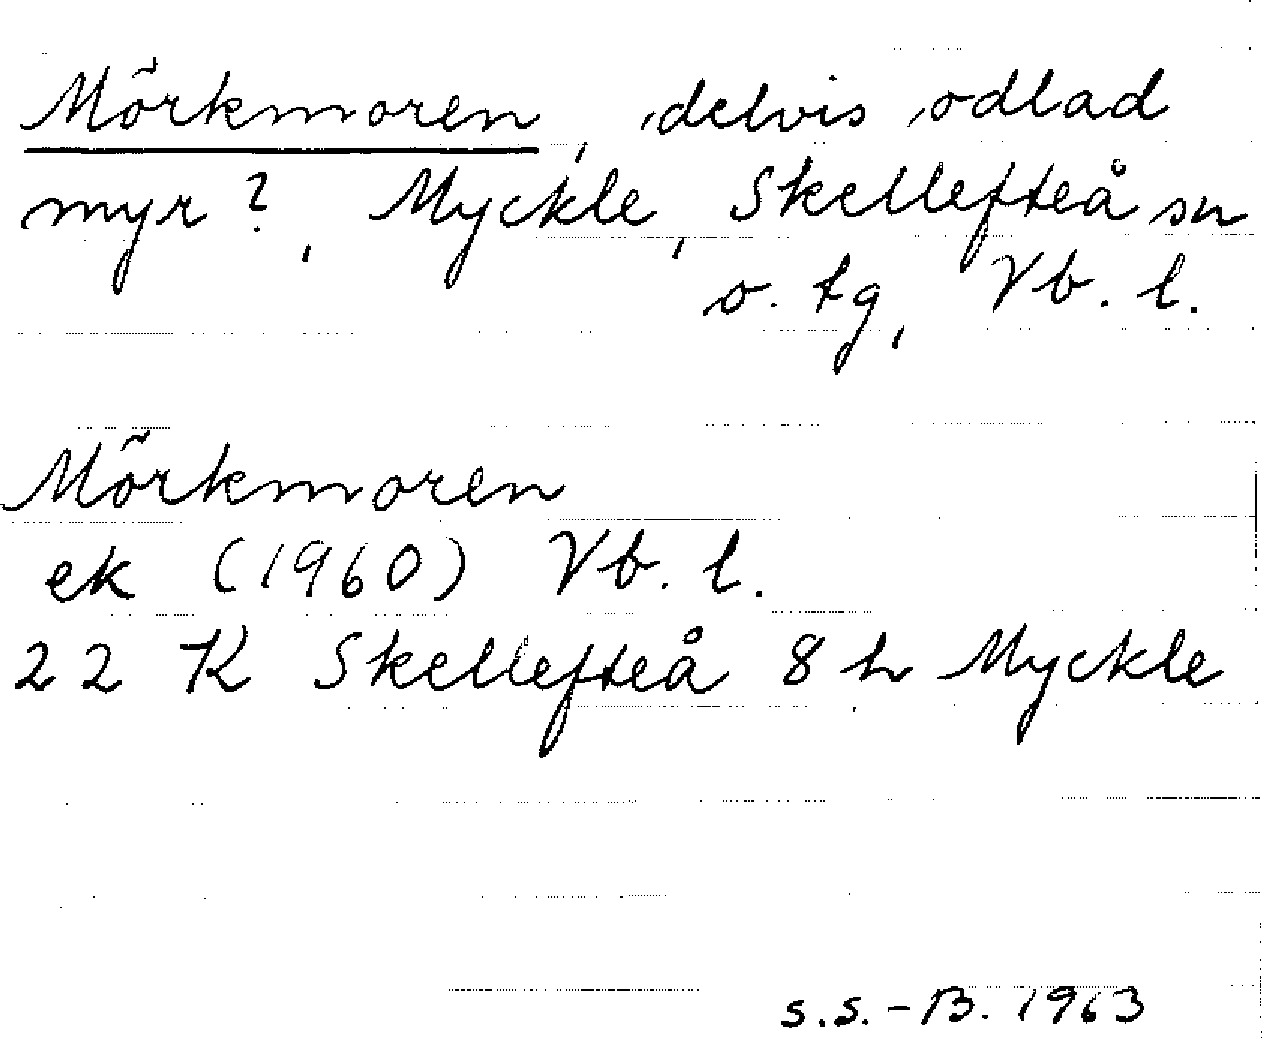 Mörkmoren, delvis odlad
myr?, Myckle, Skellefteå sn
o. tg, Vb. l.
Mörkmoren
ek (1960) Vb. l.
22 K Skellefteå 8 h Myckle
S.S.-B. 1963